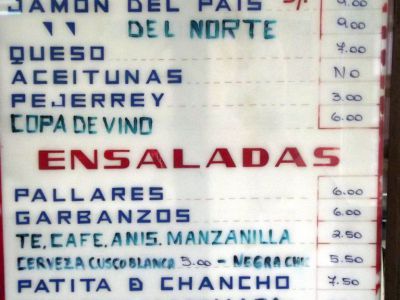 JAMON DEL PAIS S/. 9.00
" DEL NORTE 9.00
QUESO 7.00
ACEITUNAS No
PEJERREY 3.00
COPA DE VINO 6.00
ENSALADAS
PALLARES 6.00
GARBANZOS 6.00
TE, CAFE, ANIS. MANZANILLA 2.50
CERVEZA CUSCO BLANCA 5.00 - NEGRA CHIC 5.50
PATITA D CHANCHO 7.50